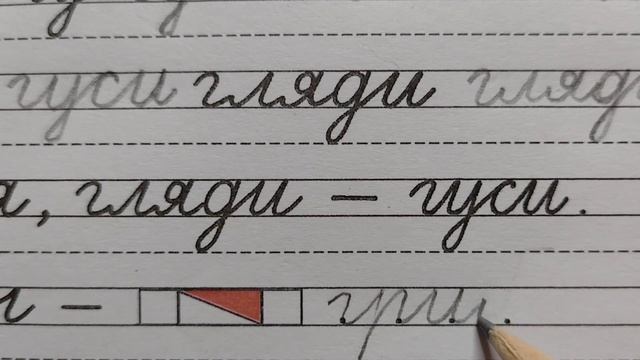 гуси гляди гляди
а, гляди – гуси.
и – гри